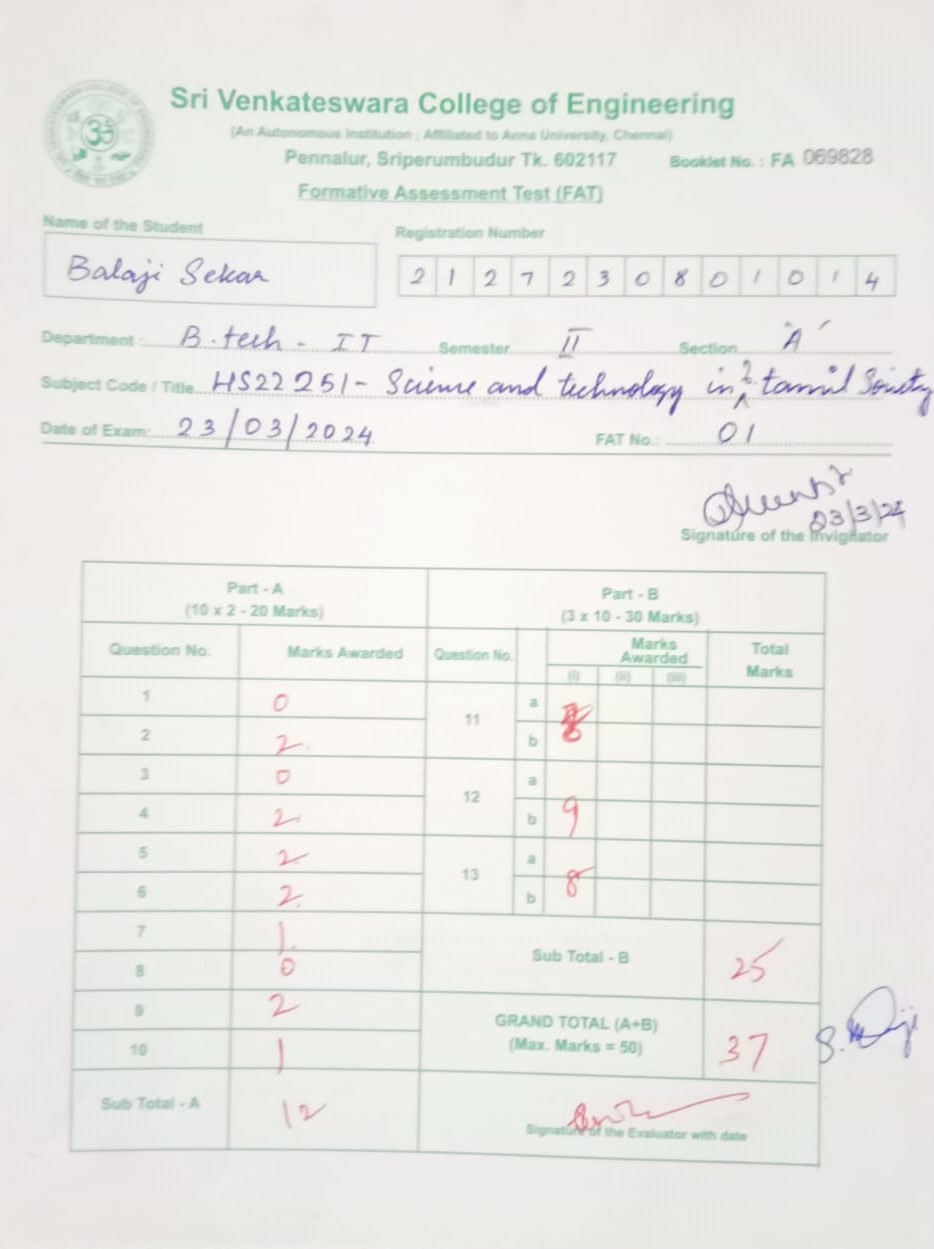 Sri Venkateswara College of Engineering
(An Autonomous Institution ; Affiliated to Anna University, Chennai)
Pennalur, Sriperumbudur Tk. 602117
Booklet No. : FA 069828
Formative Assessment Test (FAT)
Name of the Student
Registration Number
Balaji Sekar
2 1 2 7 2 3 0 8 0 1 0 1 4
Department : B.tech - IT Semester II Section 'A'
Subject Code / Title HS22251- Science and technology in tamil Society
Date of Exam: 23/03/2024 FAT No.: 01
23/3/24
Signature of the Invigilator
Part - A
(10 x 2 - 20 Marks)
Part - B
(3 x 10 - 30 Marks)
Question No. Marks Awarded Question No. Marks Awarded Total Marks
(i) (ii) (iii)
1 0
2 2
3 0
4 2
5 2
6 2
7 1
8 0
9 2
10 1
Sub Total - A 12
11 a b 8
12 a b 9
13 a b 8
Sub Total - B 25
GRAND TOTAL (A+B)
(Max. Marks = 50) 37
Signature of the Evaluator with date